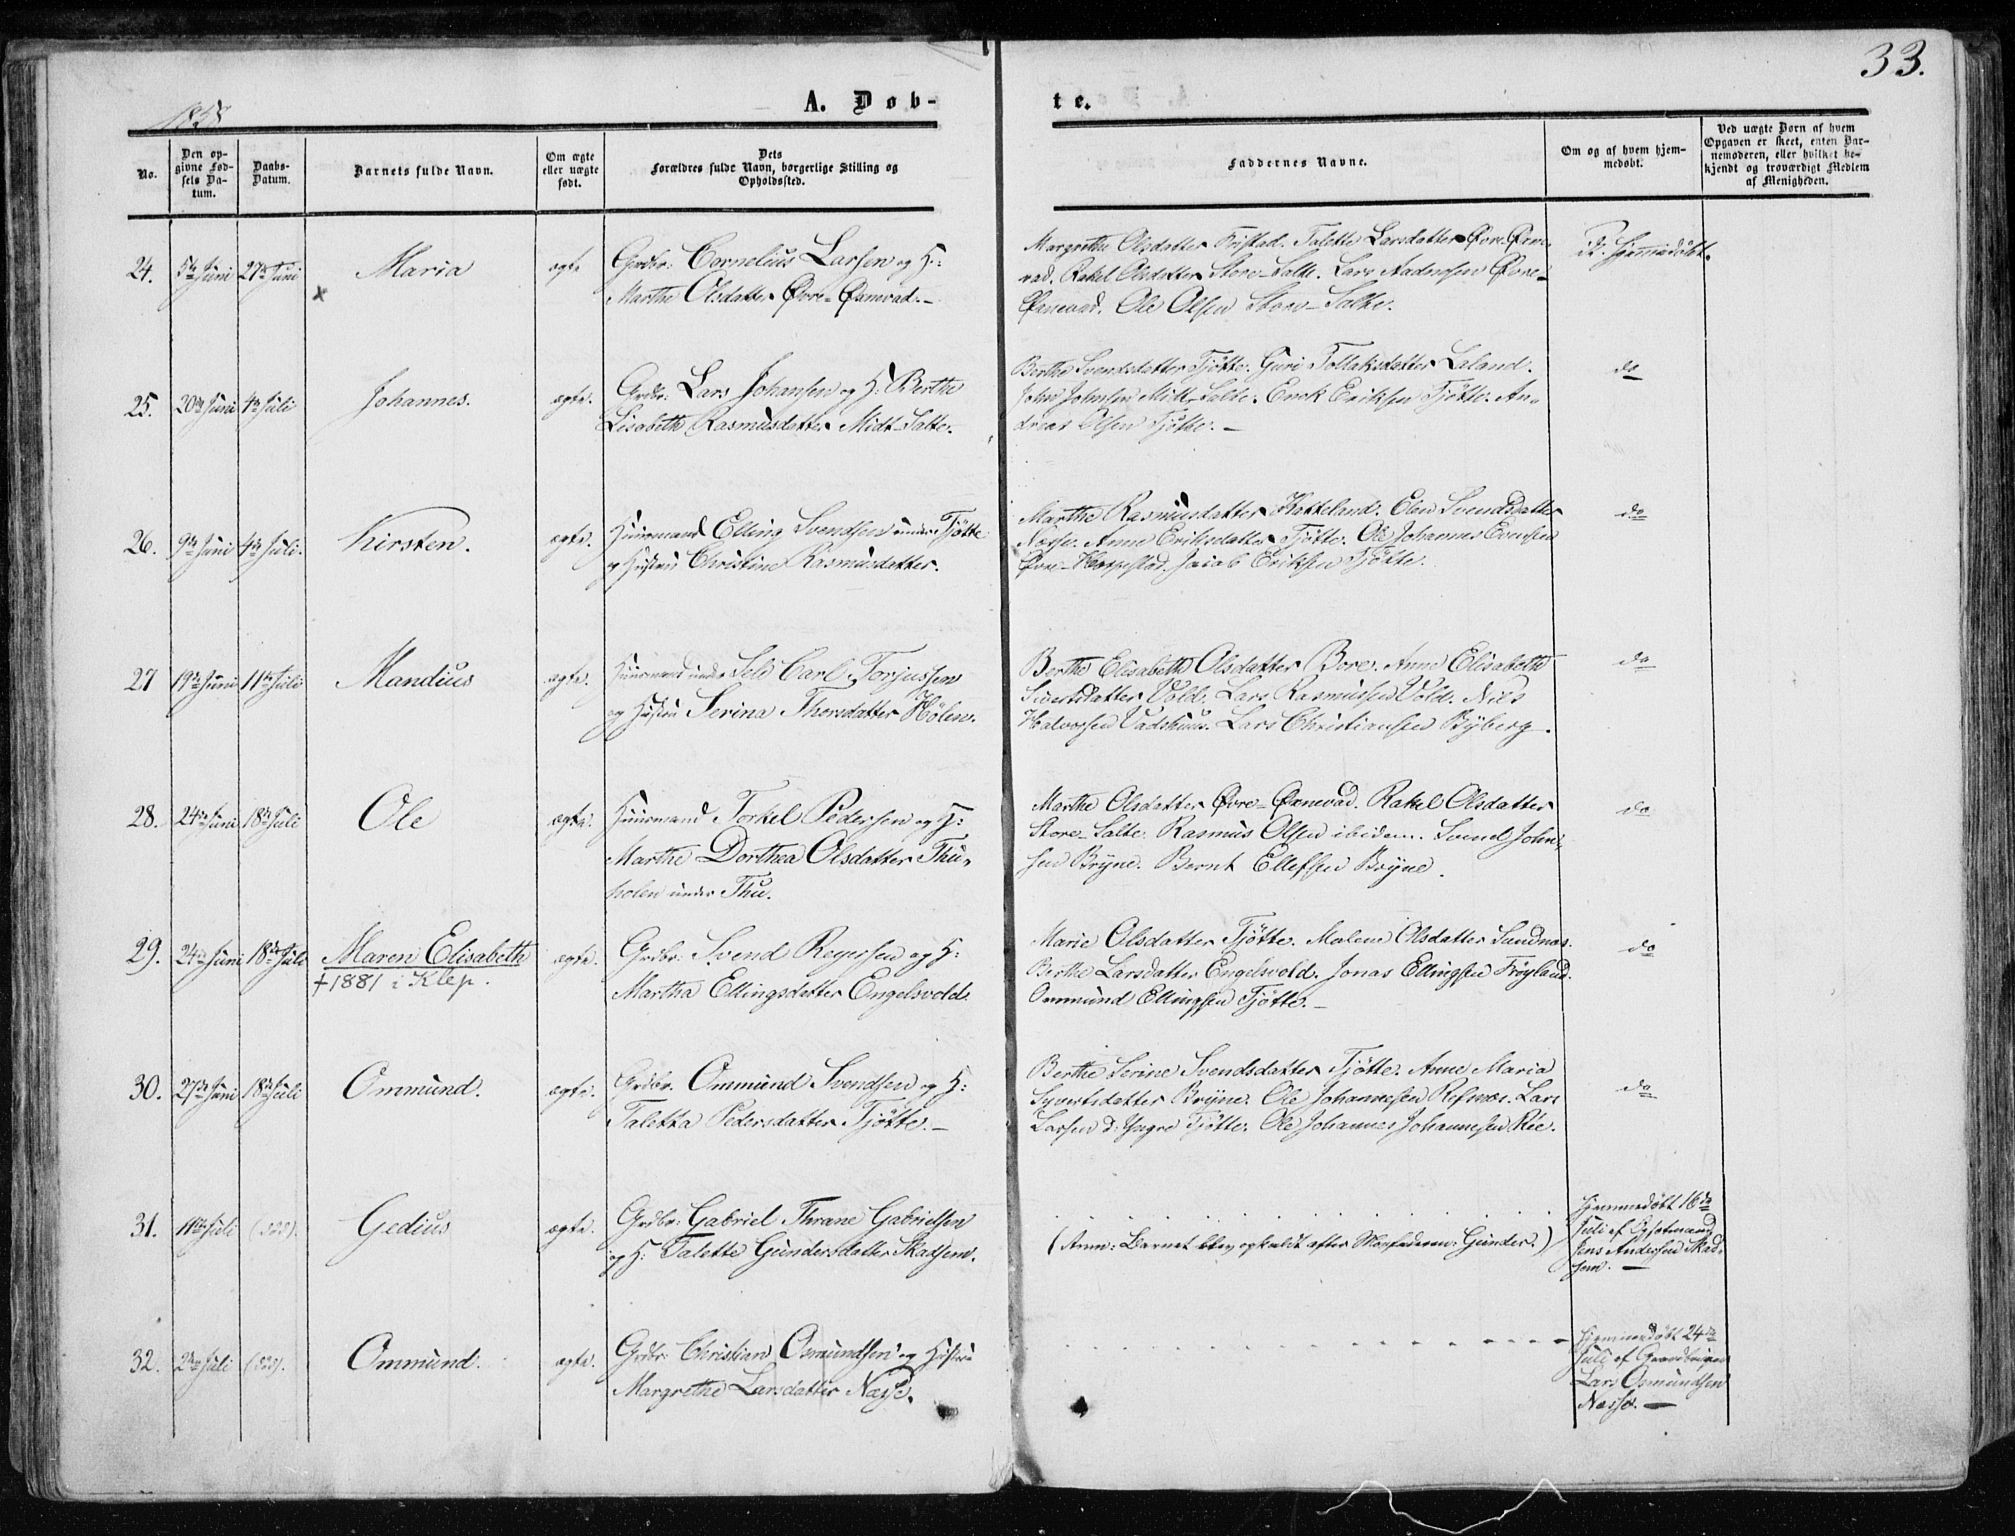 33.
1858
A. Døb-
te.
No.
Den op-
givne Fød-
sels Da-
tum.
Daabs-
Datum.
Barnets fulde Navn.
Om ægte
eller uægte
født.
Dets
Forældres fulde Navn, borgerlige Stilling og
Opholdssted.
Faddernes Navne.
Om og af hvem hjem-
medøbt.
Ved uægte Børn af hvem
Opgaven er skeet, enten Bar-
nemoderen, eller hvilket be-
kjendt og troværdigt Medlem
af Menigheden.
24. 5te Juni 27de Juni Maria ægte
Grdbr: Cornelius Larsen og H:
Marthe Olsdatter Øvre-Øxnevad.-
Margrethe Olsdatter Friestad. Talette Larsdatter Øvre-Øxne-
vad. Rakel Olsdatter Store-Salte. Lars Aadnesen Øvre-
Øxnevad. Ole Olsen Store-Salte.
Ei hjemmedøbt.
×
25. 20de Juni 4de Juli Johannes. ægte.
Grdbr. Lars Johansen og H: Berthe
Lisabeth Rasmusdatter Midt-Salte.
Berthe Svendsdatter Tjøtte. Guri Tollaksdatter Laland.
John Johnsen Midt-Salte. Enok Eriksen Tjøtte. An-
dreas Olsen Tjøtte.-
do
26. 9de Juni 4de Juli. Kirsten. ægte.
Huusmand Elling Svendsen under Tjøtte
og Hustru Christine Rasmusdatter.
Marthe Rasmusdatter Hatteland. Elen Svendsdatter
Næsse. Anne Eriksdatter Tjøtte. Ole Johannes Evensen
Øvre-Haapestad. Jacob Eriksen Tjøtte.
do
27 19de Juni 11te Juli Mandius ægte.
Huusmand under Sele Carl Torjussen
og Hustru Serina Thorsdatter Hølen.
Berthe Elisabeth Olsdatter Bore. Anne Elisabeth
Sivertsdatter Vold. Lars Rasmussen Vold. Nils
Halvorsen Vadshuus. Lars Christiansen Byberg.
do
28. 24de Juni 18de Juli Ole ægte.
Huusmand Torkel Pedersen og H:
Marthe Dorthea Olsdatter Thu-
holen under Thu.
Marthe Olsdatter Øvre-Øxnevad. Rakel Olsdatter
Store-Salte. Rasmus Olsen ibidem. Svend John-
sen Bryne. Bernt Ellefsen Bryne.
do
29. 24de Juni 18de Juli Maren Elisabeth ægte.
†1881 i Klep.
Grdbr. Svend Regersen og H:
Martha Ellingsdatter Engelsvold.
Marie Olsdatter Tjøtte. Malene Olsdatter Sandnæs.
Berthe Larsdatter Engelsvold. Jonas Ellingsen Frøyland.
Ommund Ellingsen Tjøtte.-
do
30. 27de Juni 18de Juli Ommund. ægte.
Grdbr. Ommund Svendsen og H:
Taletta Pedersdatter Tjøtte.-
Berthe Serine Svendsdatter Tjøtte. Anne Maria
Syvertsdatter Bryne. Ole Johannesen Refsnæs. Lars
Larsen d: Yngre Tjøtte. Ole Johannes Johannesen Rie.
do
31. 11te Juli Gedius ægte.
Grdbr: Gabriel Thrane Gabrielsen
og H: Talette Gundersdatter Skadsem.
(Anm: Barnet blev opkaldt efter Morfaderen: Gunder.)
Hjemmedøbt 16de
Juli af Opsidderand
Jens Andersen Skad-
sem.-
32. 2den Juli Ommund. ægte.
Grdbr: Christian Osmundsen og Hustru
Margrethe Larsdatter Næsse.
Hjemmedøbt 24de
Juli af Gaardbruger
Lars Osmundsen
Næsse.-